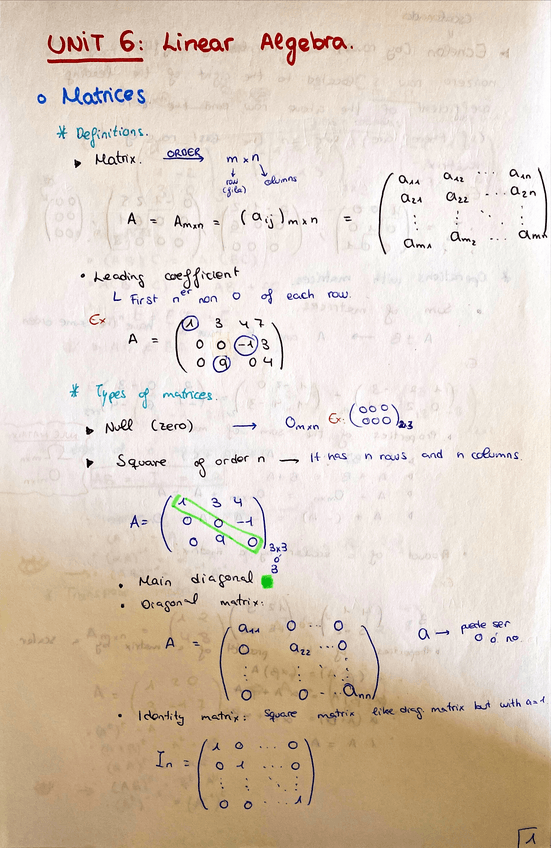 UNIT 6: Linear Algebra.
o Matrices
* Definitions.
▸ Matrix. ORDER → m x n
↓ row (fila) ↘ columns
A = Amxn = (aij)mxn = ( a11 a12 ... a1n
a21 a22 ... a2n
⋮ ⋮ ⋱ ⋮
am1 am2 ... amn )
• Leading coefficient
L First ner non 0 of each row.
Ex
A = ( 1 3 4 7
0 0 -1 3
0 9 0 4 )
* Types of matrices.
▸ Null (zero) → Omxn Ex: ( 0 0 0
0 0 0 )2x3
▸ Square of order n → It has n rows and n columns.
A = ( 1 3 4
0 0 -1
0 9 0 )3x3
ó
3
• Main diagonal
• Diagonal matrix:
A = ( a11 0 ... 0
0 a22 ... 0
⋮ ⋮ ⋱ ⋮
0 0 ... ann )
a → puede ser
0 ó no.
• Identity matrix: Square matrix like diag. matrix but with a=1
In = ( 1 0 ... 0
0 1 ... 0
⋮ ⋮ ⋱ ⋮
0 0 ... 1 )
1